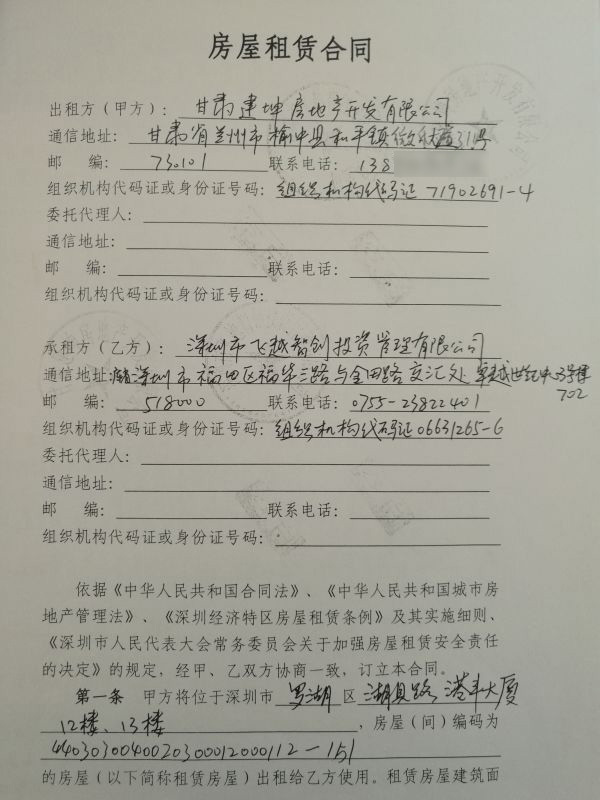 房屋租赁合同
出租方（甲方）：甘肃建坤房地产开发有限公司
通信地址：甘肃省兰州市榆中县和平镇 31号
邮 编：730101 联系电话：138
组织机构代码证或身份证号码：组织机构代码证 71902691-4
委托代理人：
通信地址：
邮 编： 联系电话：
组织机构代码证或身份证号码：
承租方（乙方）：深圳市飞越智创投资管理有限公司
通信地址：深圳市福田区福华三路与金田路交汇处卓越世纪中心3号楼
702
邮 编：518000 联系电话：0755-23822401
组织机构代码证或身份证号码：组织机构代码证06631265-6
委托代理人：
通信地址：
邮 编： 联系电话：
组织机构代码证或身份证号码：
依据《中华人民共和国合同法》、《中华人民共和国城市房
地产管理法》、《深圳经济特区房屋租赁条例》及其实施细则、
《深圳市人民代表大会常务委员会关于加强房屋租赁安全责任
的决定》的规定，经甲、乙双方协商一致，订立本合同。
第一条 甲方将位于深圳市 罗湖 区 湖贝路 港丰大厦
12楼、13楼 ，房屋（间）编码为
4403030040020300012000112-151
的房屋（以下简称租赁房屋）出租给乙方使用。租赁房屋建筑面